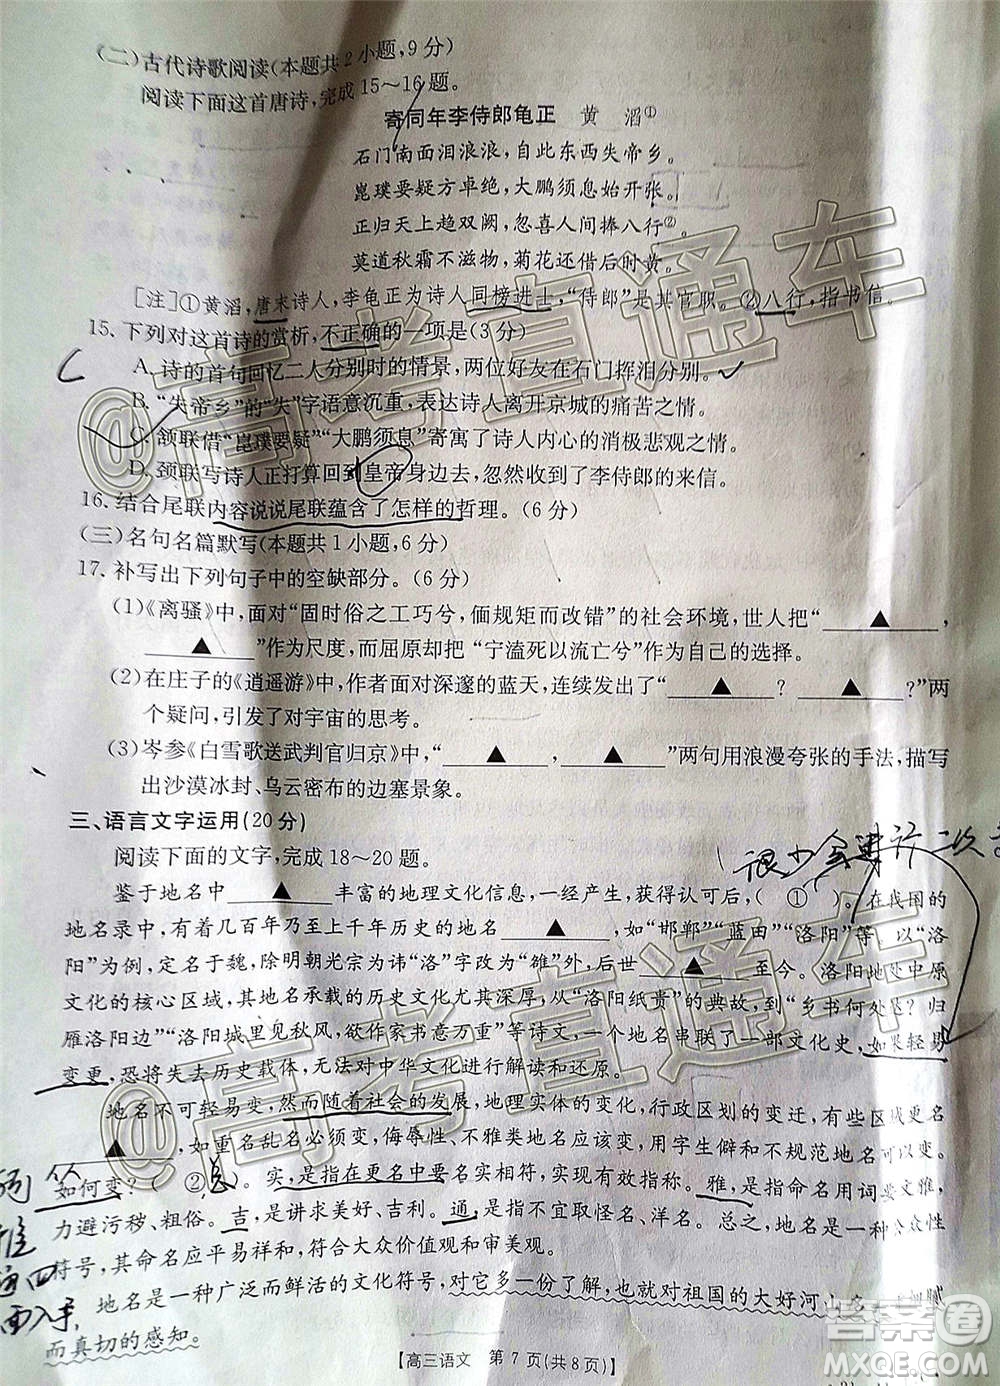 (二)古代诗歌阅读(本题共2小题,9分)
阅读下面这首唐诗,完成15～16题。
寄同年李侍郎龟正 黄 滔①
石门南面泪浪浪,自此东西失帝乡。
崑璞要疑方卓绝,大鹏须息始开张。
正归天上趋双阙,忽喜人间捧八行②
莫道秋霜不滋物,菊花还借后时黄。
[注]①黄滔,唐末诗人,李龟正为诗人同榜进士,“侍郎”是其官职。②八行,指书信。
15.下列对这首诗的赏析,不正确的一项是(3分)
C
A.诗的首句回忆二人分别时的情景,两位好友在石门挥泪分别。
B.“失帝乡”的“失”字语意沉重,表达诗人离开京城的痛苦之情。
C.颔联借“崑璞要疑”“大鹏须息”寄寓了诗人内心的消极悲观之情。
D.颈联写诗人正打算回到皇帝身边去,忽然接到了李侍郎的来信。
16.结合尾联内容说说尾联蕴含了怎样的哲理。(6分)
(三)名句名篇默写(本题共1小题,6分)
17.补写出下列句子中的空缺部分。(6分)
(1)《离骚》中,面对“固时俗之工巧兮,偭规矩而改错”的社会环境,世人把“▲,
▲”作为尺度,而屈原却把“宁溘死以流亡兮”作为自己的选择。
(2)在庄子的《逍遥游》中,作者面对深邃的蓝天,连续发出了“▲?▲?”两
个疑问,引发了对宇宙的思考。
(3)岑参《白雪歌送武判官归京》中,“▲,▲”两句用浪漫夸张的手法,描写
出沙漠冰封、乌云密布的边塞景象。
三、语言文字运用(20分)
阅读下面的文字,完成18～20题。
很少会进行二次
鉴于地名中▲丰富的地理文化信息,一经产生,获得认可后,(①)。在我国的
地名录中,有着几百年乃至上千年历史的地名▲,如“邯郸”“蓝田”“洛阳”等。以“洛
阳”为例,定名于魏,除明朝光宗为讳“洛”字改写为“雒”外,后世▲至今。洛阳地处中原
文化的核心区域,其地名承载的历史文化尤其深厚,从“洛阳纸贵”的典故,到“乡书何处达?归
雁洛阳边”“洛阳城里见秋风,欲作家书意万重”等诗文,一个地名串联了一部文化史,如果轻易
变更,恐将失去历史载体,无法对中华文化进行解读和还原。
地名不可轻易变,然而随着社会的发展,地理实体的变化,行政区划的变迁,有些区域更名
▲,如重名乱名必须变,侮辱性、不雅类地名应该变,用字生僻和不规范类要变……
如何变?(②)。实,是指在更名中要名实相符,实指称。雅,是指命名用词要文雅,
力避污秽、粗俗。吉,是讲求美好、吉利。通,是指不宜取怪名、洋名。总之,地名是一种公众性
符号,其命名应平易祥和,符合大众价值观和审美观。
地名是一种广泛而鲜活的文化符号,对它多一份了解,也就对祖国的大好河山多
而真切的感知。
【高三语文 第7页(共8页)】
@高考直通车
@高考直通车
答案圈
MXQE.COM